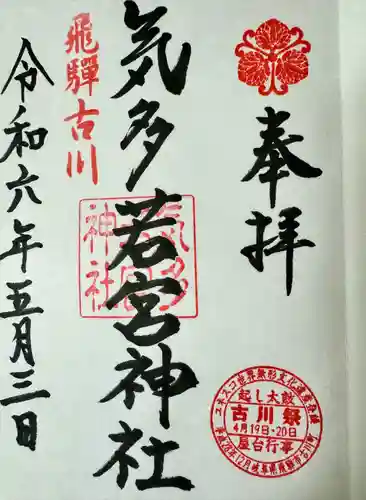 奉拝
飛騨古川
気多若宮神社
令和六年五月三日
気多
若宮
神社
起し太鼓
古川祭
4月19日・20日
屋台行事